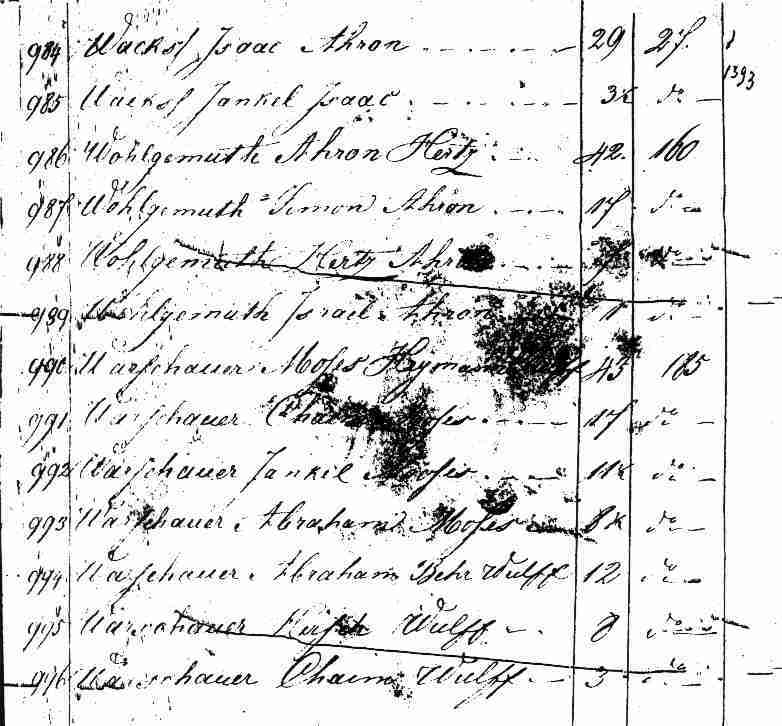 984 Wacks Isaac Ahron 29 27.
1393
985 Wacks Jankel Isaac 3 do
986 Wohlgemuth Ahron Hertz 42. 160
987 Wohlgemuth Simon Ahron 17 do
988 Wohlgemuth Hertz do
989 Wohlgemuth Israel Ahron 11 do
990 Warschauer Moses Heymann 45 185
991 Warschauer Moses 17 do
992 Warschauer Jankel Moses 11 do
993 Warschauer Abraham Moses 8 do
994 Warschauer Abraham Behr Wulff 12 do
995 Warschauer Hirsch Wulff 8 do
996 Warschauer Chaim Wulff 3 do